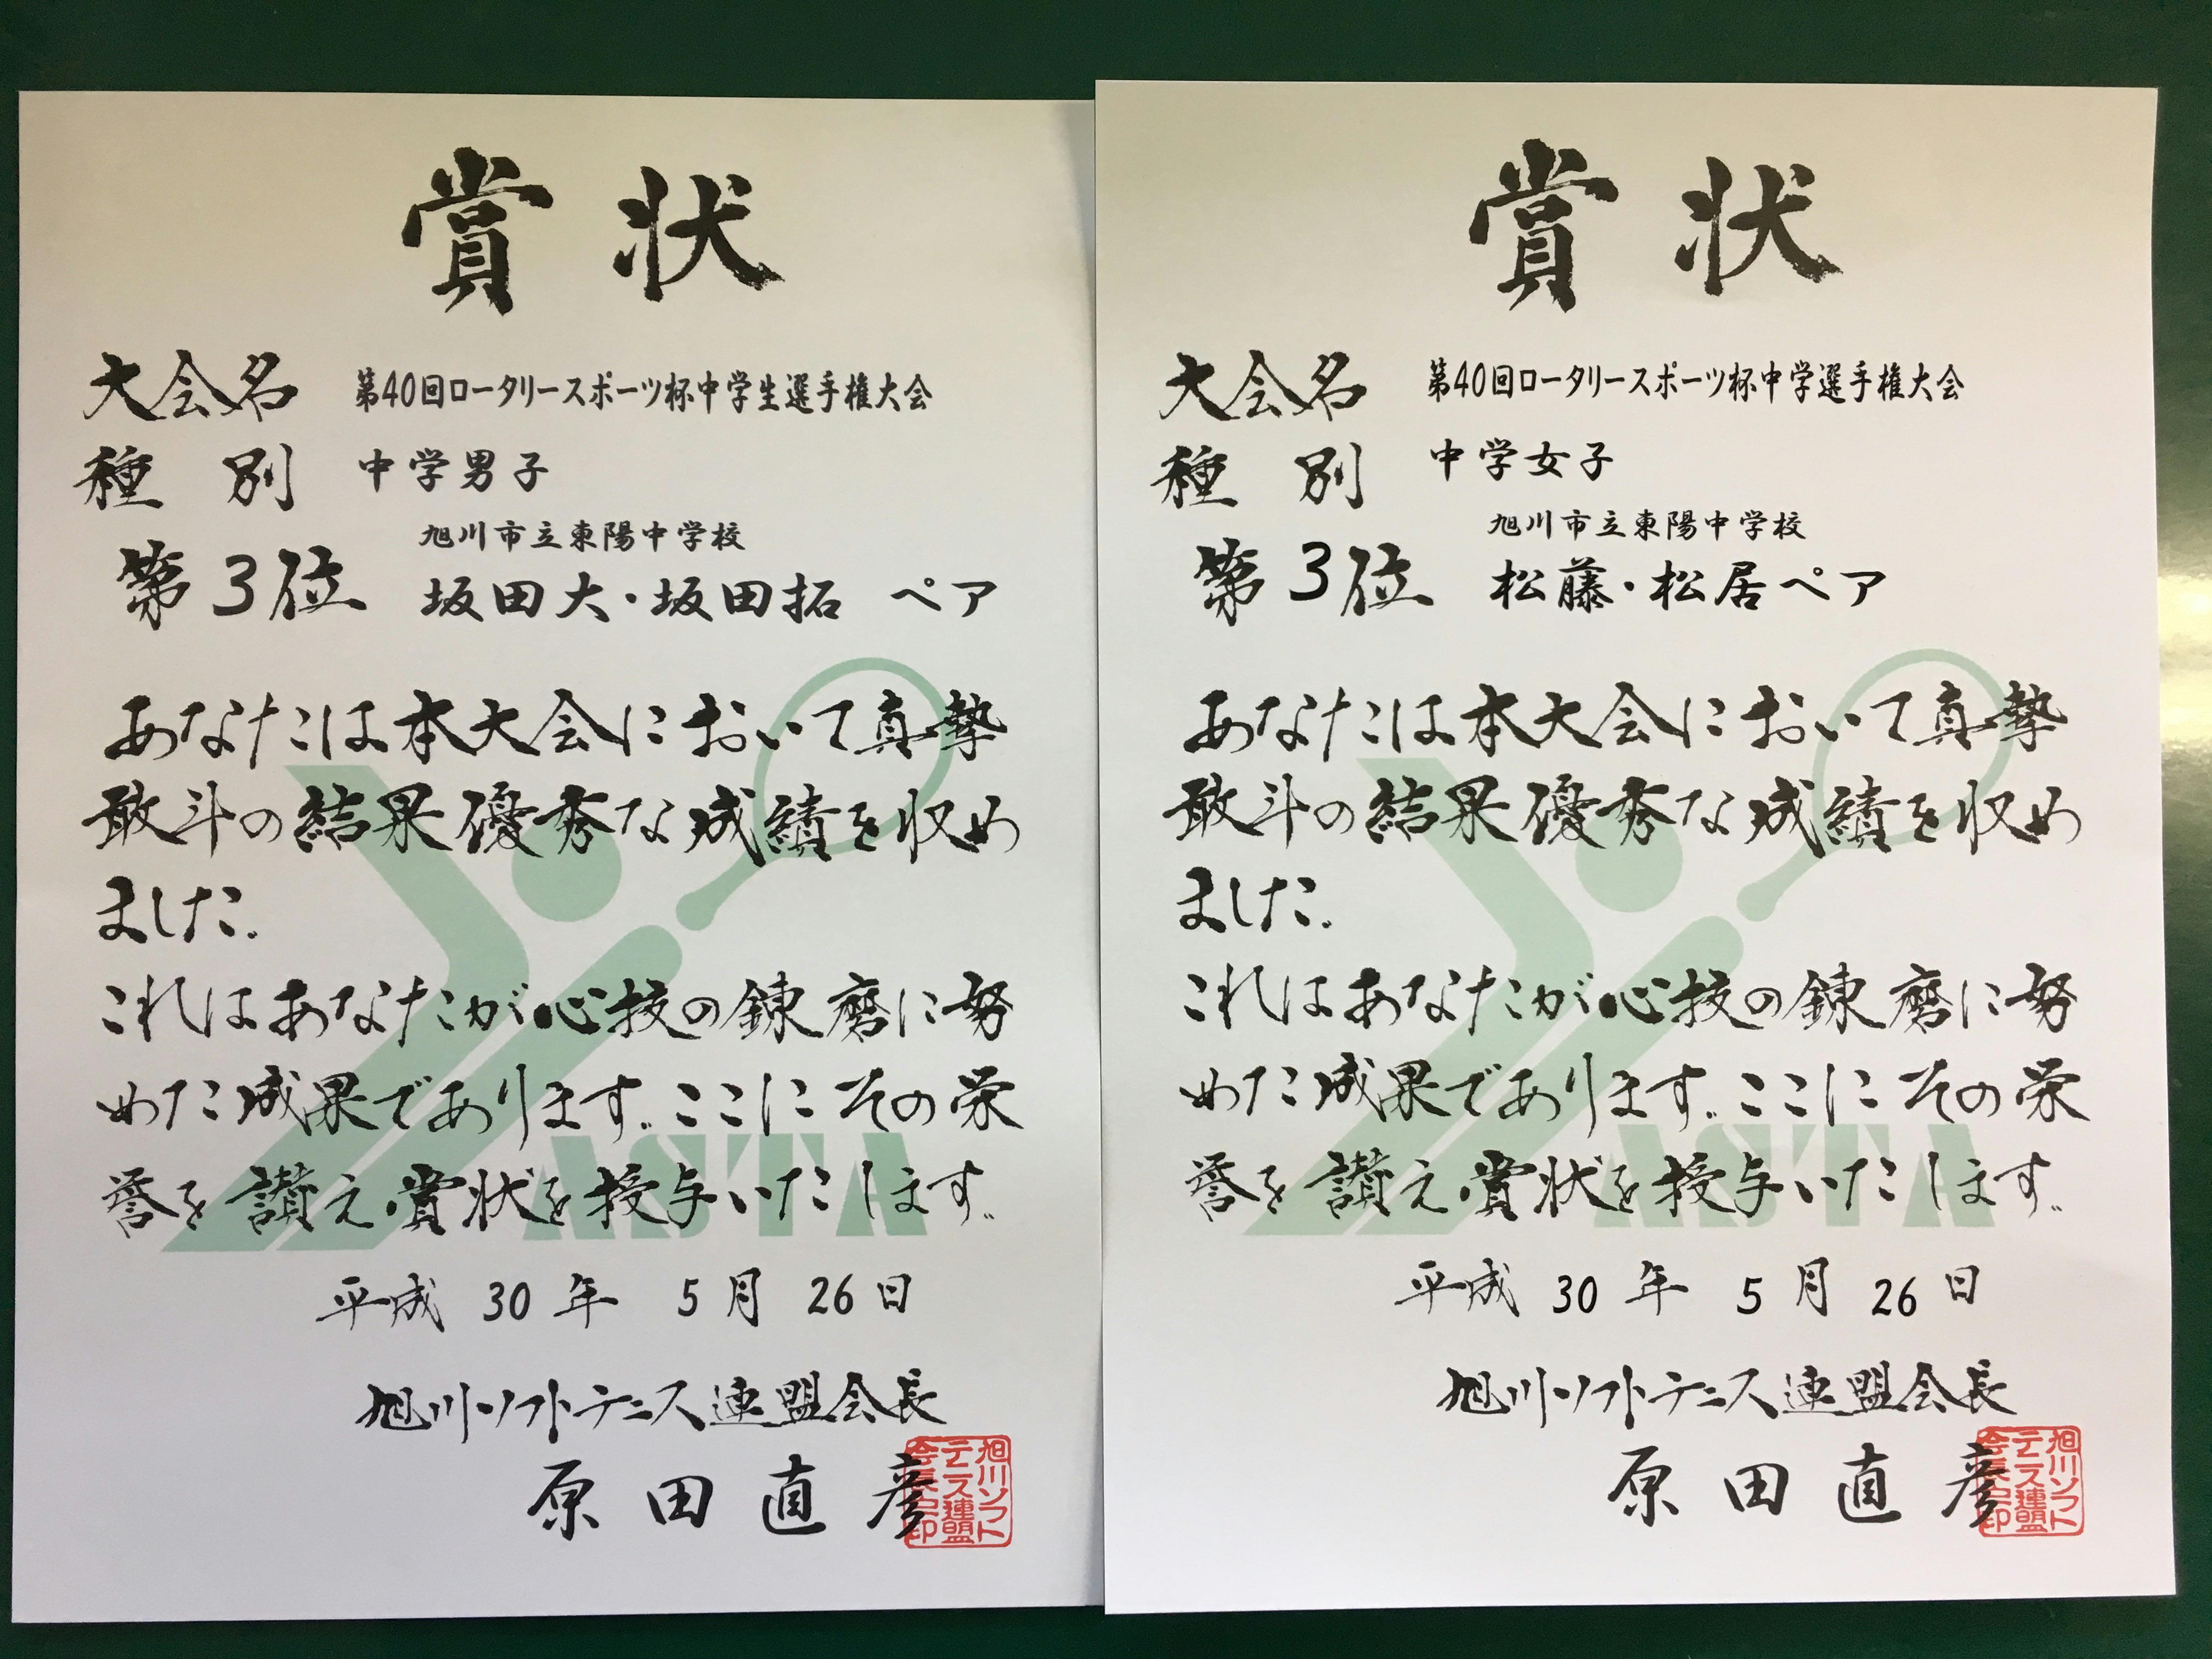 賞状
大会名 第40回ロータリースポーツ杯中学生選手権大会
種別 中学男子
旭川市立東陽中学校
第3位 坂田大・坂田拓 ペア
あなたは本大会において真摯
敢斗の結果優秀な成績を収め
ました。
これはあなたが心技の錬磨に努
めた成果であります。ここにその栄
誉を讃え賞状を授与いたします。
ASTA
平成 30 年 5 月 26 日
旭川ソフトテニス連盟会長
原田直彦
旭川ソフト
テニス連盟
会長之印
賞状
大会名 第40回ロータリースポーツ杯中学選手権大会
種別 中学女子
旭川市立東陽中学校
第3位 松藤・松居ペア
あなたは本大会において真摯
敢斗の結果優秀な成績を収め
ました。
これはあなたが心技の錬磨に努
めた成果であります。ここにその栄
誉を讃え賞状を授与いたします。
ASTA
平成 30 年 5 月 26 日
旭川ソフトテニス連盟会長
原田直彦
旭川ソフト
テニス連盟
会長之印